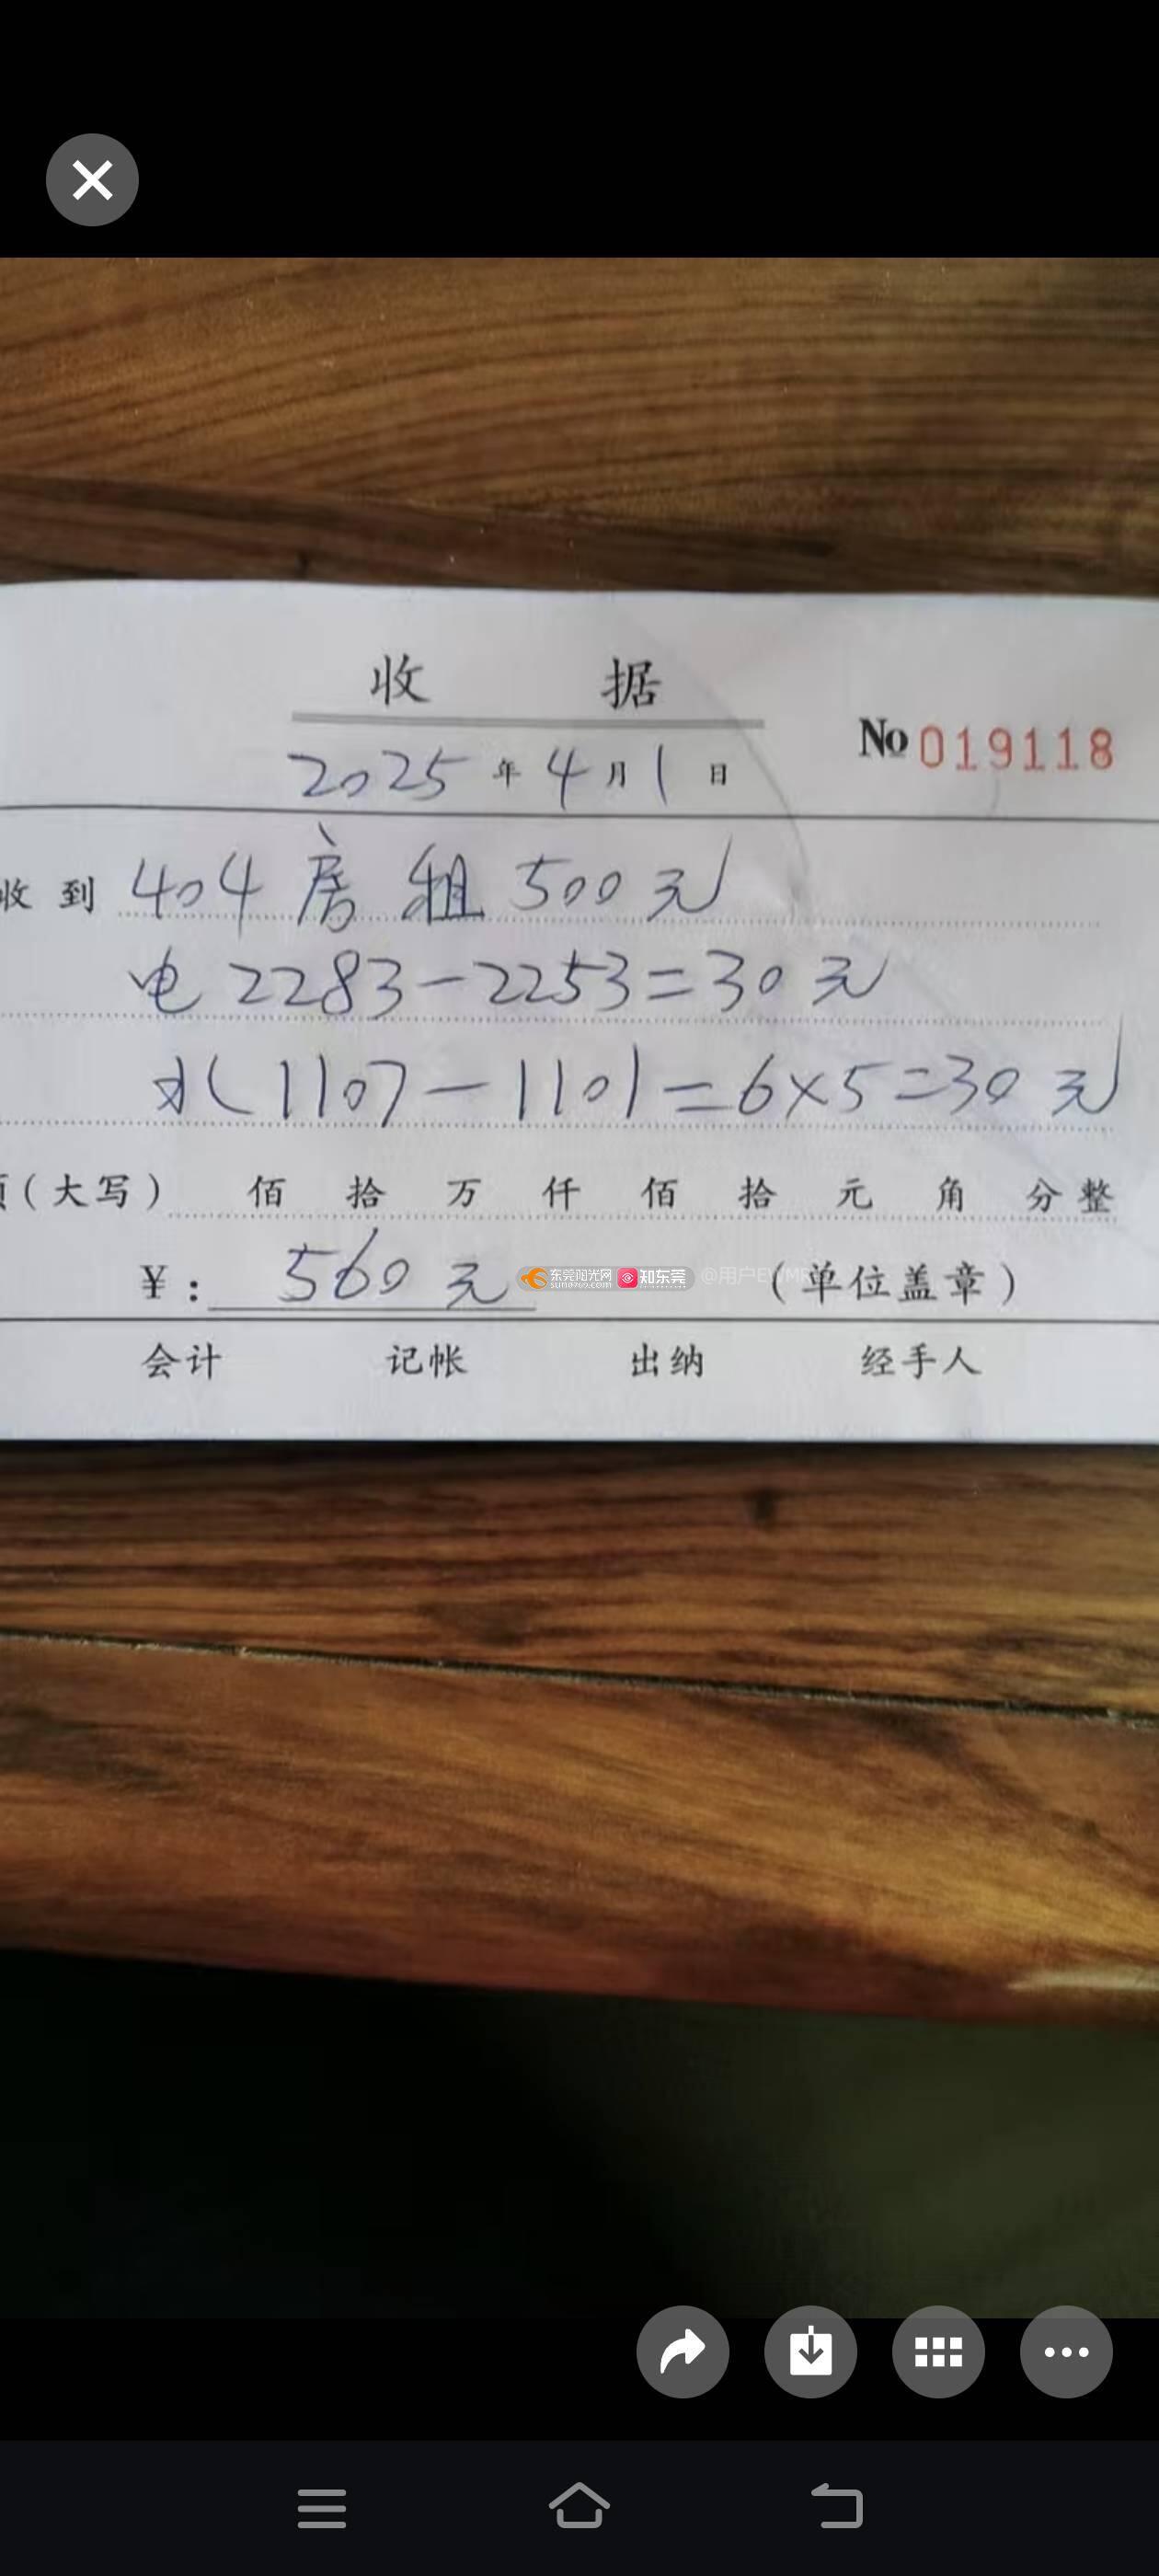 收 据
No 019118
2025 年 4 月 1 日
收到 404 房租 500元
电 2283-2253=30 元
水 1107-1101=6×5=30 元
(大写) 佰 拾 万 仟 佰 拾 元 角 分 整
¥: 560 元 (单位盖章)
东莞阳光网 SUN0769.COM 知东莞
会计 记帐 出纳 经手人